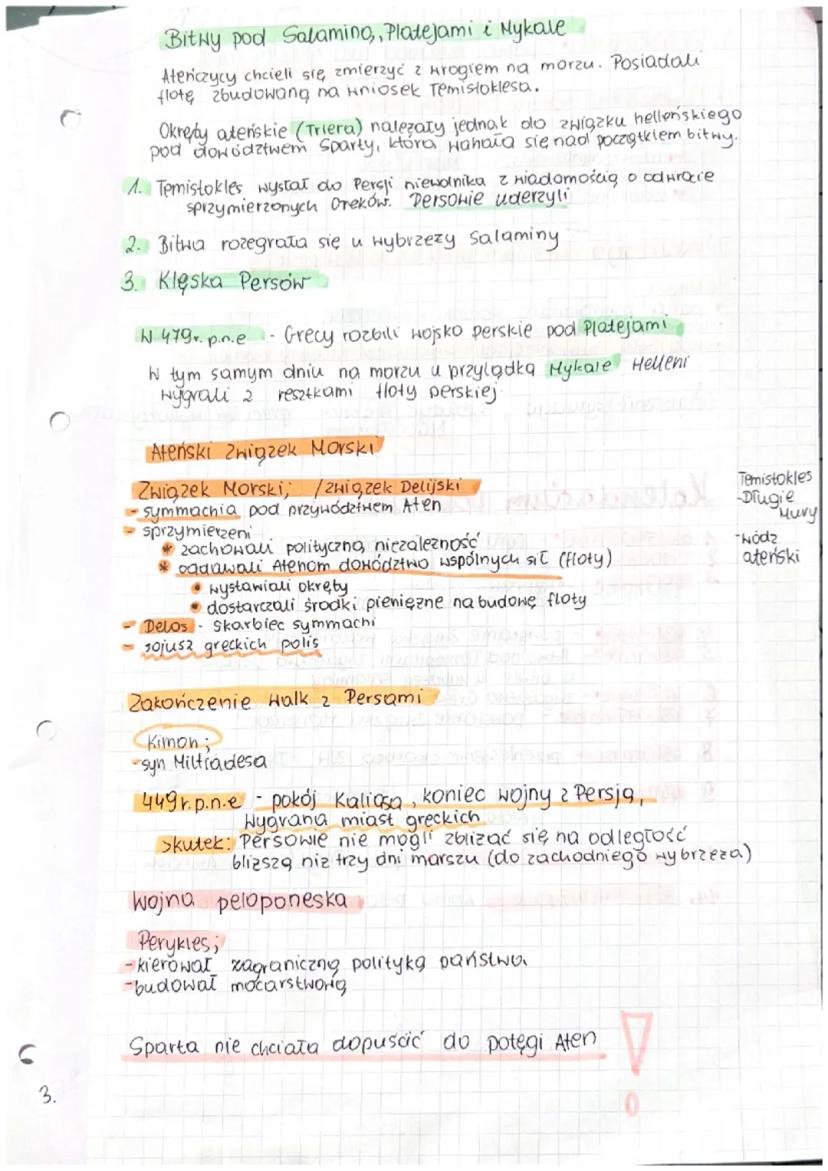 Bitwy pod Salaminą, Platejami i Mykale
Ateńczycy chcieli się zmierzyć z wrogiem na morzu. Posiadali
flotę zbudowaną na wniosek Temistoklesa.
Okręty ateńskie (Triera) należały jednak do związku helleńskiego
pod dowództwem Sparty, która wahała się nad początkiem bitwy.
1. Temistokles wysłał do Persji niewolnika z wiadomością o odwrocie
sprzymierzonych Greków. Persowie uderzyli
2. Bitwa rozegrała się u wybrzeży Salaminy
3. Klęska Persów
W 479r. p.n.e - Grecy rozbili wojsko perskie pod Platejami
W tym samym dniu na morzu u przylądka Mykale Helleni
wygrali z resztkami floty perskiej
Ateński Związek Morski
Związek Morski; /związek Delijski
- symmachia pod przywództwem Aten
- sprzymierzeni
* zachowali polityczną niezależność
* oddawali Atenom dowództwo wspólnych sił (floty)
• wystawiali okręty
• dostarczali środki pieniężne na budowę floty
- Delos - skarbiec symmachi
- sojusz greckich polis
Temistokles
-Długie
Mury
-wódz
ateński
Zakończenie walk z Persami
Kimon;
-syn Miltiadesa
449r.p.n.e - pokój Kaliasa, koniec wojny z Persją,
Wygrana miast greckich
skutek: Persowie nie mogli zbliżać się na odległość
bliższą niż trzy dni marszu (do zachodniego wybrzeża)
Wojna peloponeska
Perykles;
-kierował zagraniczną polityką państwa
-budował mocarstwową
Sparta nie chciała dopuścić do potęgi Aten !
3.